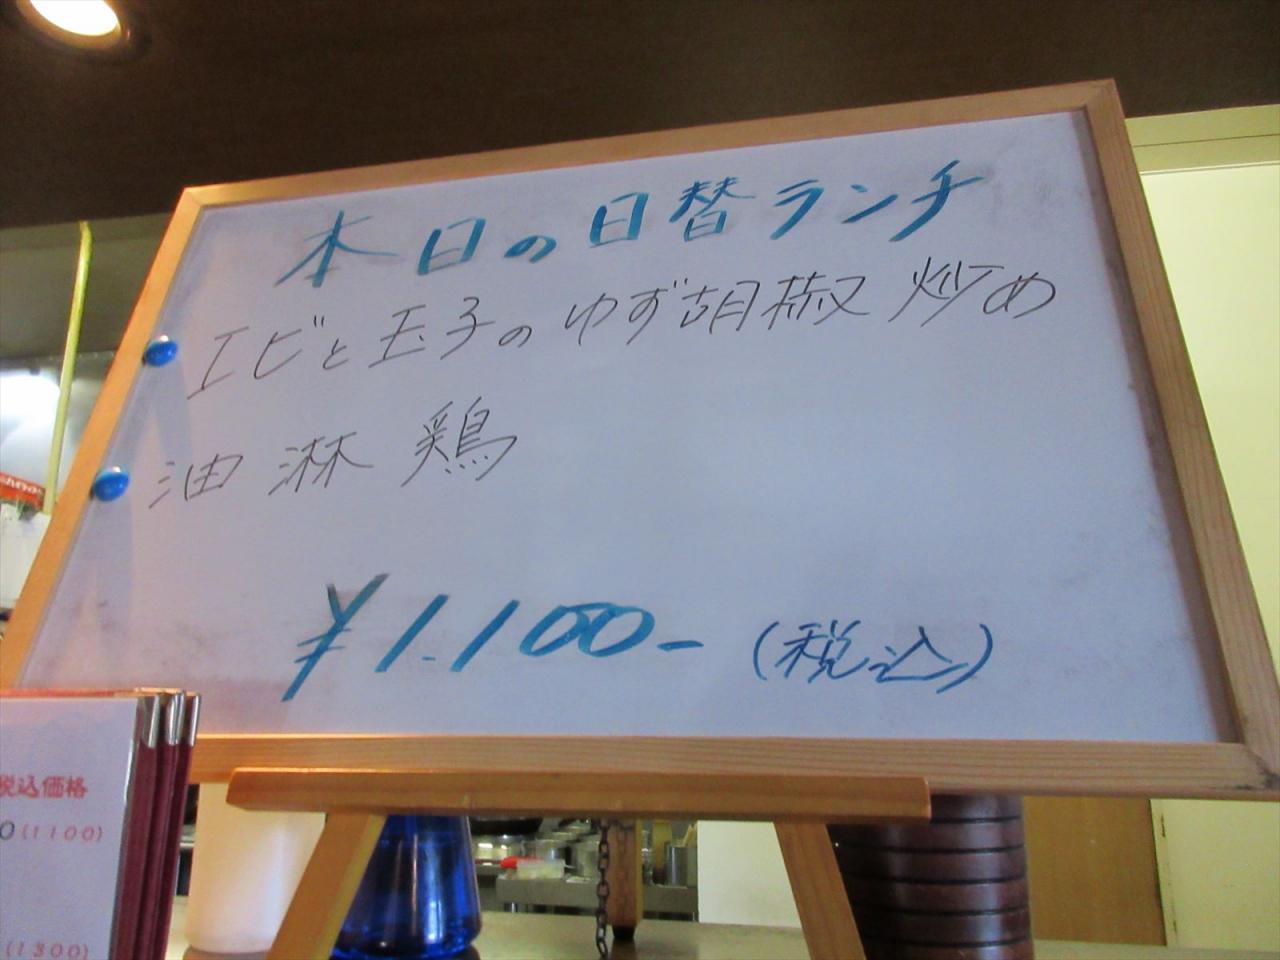 本日の日替ランチ
エビと玉子のゆず胡椒炒め
油淋鶏
¥1.100-(税込)
税込価格
0(1100)
(1300)